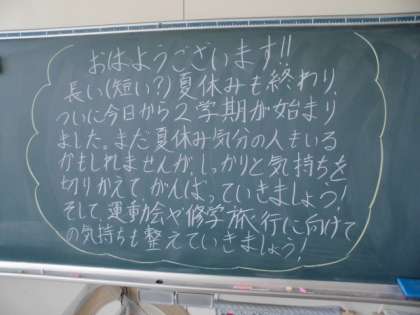 おはようございます!!
長い(短い?)夏休みも終わり、
ついに今日から2学期が始まり
ました。まだ夏休み気分の人もいる
かもしれませんが、しっかりと気持ちを
切りかえてがんばっていきましょう!
そして、運動会や修学旅行に向けて
の気持ちも整えていきましょう!